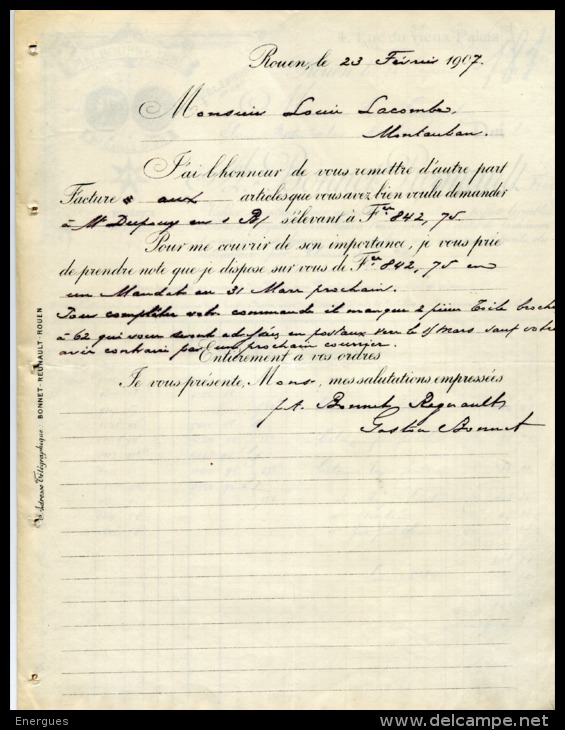 4, Rue du Vieux Palais
Rouen, le 23 Février 1907.
Monsieur Louis Lacombe,
Montauban.
J'ai l'honneur de vous remettre d'autre part
Facture aux articles que vous avez bien voulu demander
à Mr Dupouy en s'élevant à Fcs 842,75
Pour me couvrir de son importance, je vous prie
de prendre note que je dispose sur vous de Fcs 842,75 en
un Mandat au 31 Mars prochain.
Pour compléter votre commande il manque 2 pièces Toile broche
à 62 qui vous seront adressées en postaux vers le 15 Mars sauf votre
avis contraire par prochain courrier.
Entièrement à vos ordres
Je vous présente, Monsr, mes salutations empressées
Bonnet Regnault
Gaston Bonnet
Adresse Télégraphique: BONNET-REGNAULT-ROUEN
Energues
www.delcampe.net